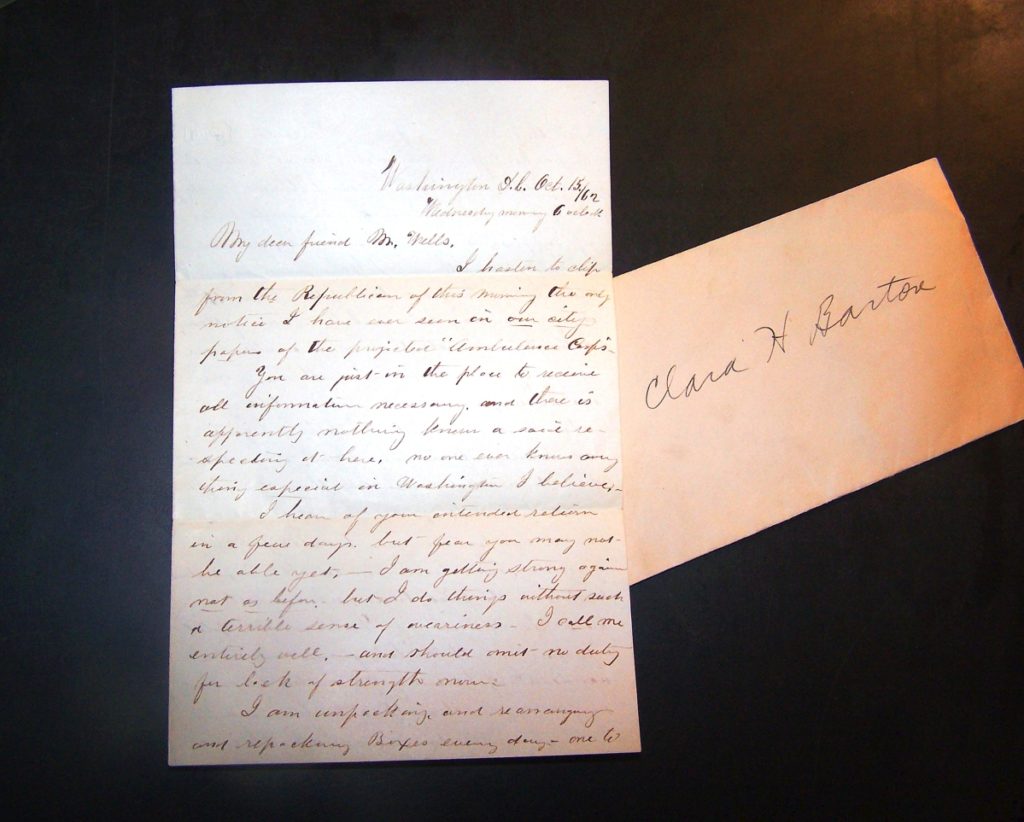 Washington D.C. Oct. 15/62
Wednesday morning 6 oclock
My dear friend Mr. Wells.
I hasten to clip
from the Republican of this morning the only
notice I have ever seen in our city
papers of the projected "Ambulance Corps"-
You are just in the place to receive
all information necessary. and there is
apparently nothing known a
specting it here. no one ever knows any
thing especial in Washington I believe,-
I hear of your intended return
in a few days. but fear you may not
be able yet, - I am getting strong again
not as before. but I do things without such
a terrible sense of weariness - I call me
entirely well. - and should omit no duty
for lack of strength now =
I am unpacking and rearranging
and repacking Boxes every day - one to
Clara H Barton